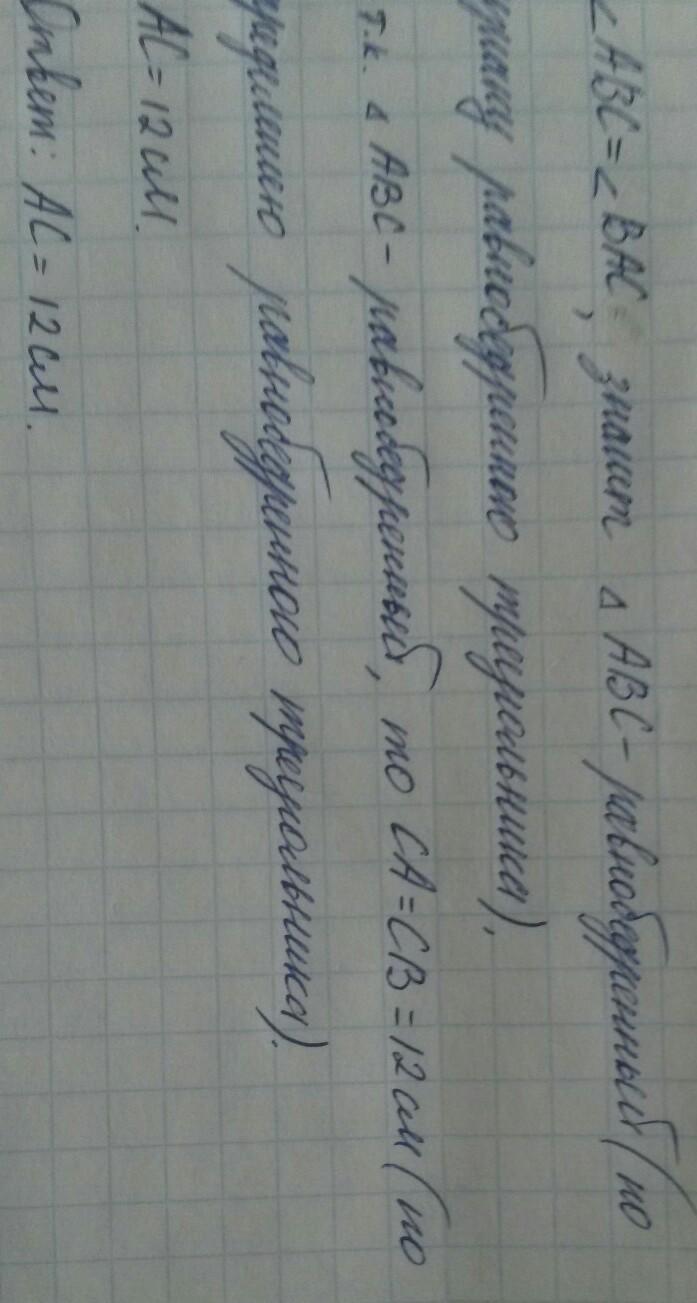 ∠ABC=∠BAC, значит △ABC-равнобедренный (по
изнаку равнобедренного треугольника).
т.к. △ABC-равнобедренный, то CA=CB=12см (по
ределению равнобедренного треугольника).
AC=12см.
Ответ: AC=12см.